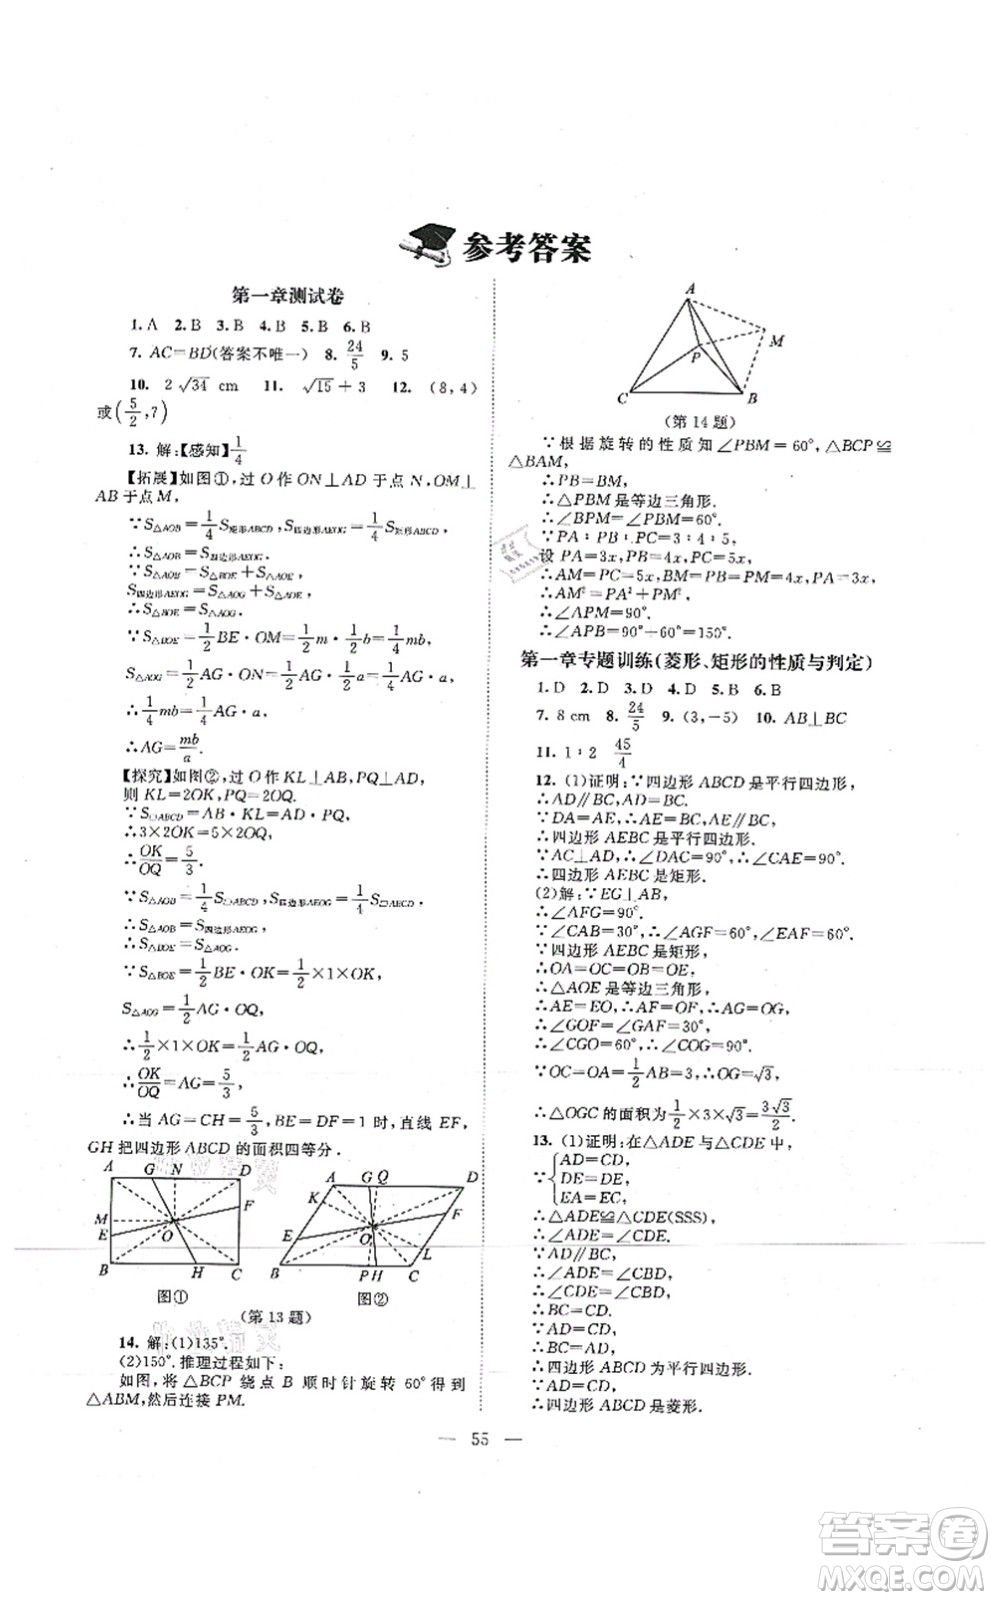 参考答案
第一章测试卷
1. A 2. B 3. B 4. B 5. B 6. B
7. AC=BD(答案不唯一) 8. 24/5 9. 5
10. 2√34 cm 11. √15+3 12. (8,4)
或(5/2,7)
13. 解:【感知】1/4
【拓展】如图①,过 O 作 ON⊥AD 于点 N,OM⊥
AB 于点 M,
∵S△AOB=1/4 S矩形ABCD,S四边形AEOG=1/4 S矩形ABCD,
∴S△AOB=S四边形AEOG.
∵S△AOB=S△BOE+S△AOE,
S四边形AEOG=S△AOG+S△AOE,
∴S△BOE=S△AOG.
∵S△BOE=1/2 BE·OM=1/2 m·1/2 b=1/4 mb,
S△AOG=1/2 AG·ON=1/2 AG·1/2 a=1/4 AG·a,
∴1/4 mb=1/4 AG·a,
∴AG=mb/a.
【探究】如图②,过 O 作 KL⊥AB,PQ⊥AD,
则 KL=2OK,PQ=2OQ.
∵S▱ABCD=AB·KL=AD·PQ,
∴3×2OK=5×2OQ,
∴OK/OQ=5/3.
∵S△AOB=1/4 S▱ABCD,S四边形AEOG=1/4 S▱ABCD,
∴S△AOB=S四边形AEOG,
∴S△BOE=S△AOG.
∵S△BOE=1/2 BE·OK=1/2×1×OK,
S△AOG=1/2 AG·OQ,
∴1/2×1×OK=1/2 AG·OQ,
∴OK/OQ=AG=5/3.
∴当 AG=CH=5/3,BE=DF=1 时,直线 EF,
GH 把四边形 ABCD 的面积四等分.
A G N D
M
E
O
F
B H C
图①
A G Q D
K
E
O
F
L
B P H C
图②
(第13题)
14. 解:(1)135°.
(2)150°.推理过程如下:
如图,将△BCP 绕点 B 顺时针旋转 60°得到
△ABM,然后连接 PM.
A
M
P
C
B
(第14题)
∵根据旋转的性质知∠PBM=60°,△BCP≌
△BAM,
∴PB=BM,
∴△PBM是等边三角形.
∴∠BPM=∠PBM=60°.
∵PA∶PB∶PC=3∶4∶5,
设 PA=3x,PB=4x,PC=5x,
∴AM=PC=5x,BM=PB=PM=4x,
∴AM²=PA²+PM²,
∴∠APM=90°.
∴∠APB=90°+60°=150°.
第一章专题训练(菱形、矩形的性质与判定)
1. D 2. D 3. D 4. D 5. B 6. B
7. 8 cm 8. 24/5 9. (3,-5) 10. AB⊥BC
11. 1∶2 45/4
12. (1)证明:∵四边形 ABCD是平行四边形,
∴AD∥BC,AD=BC.
∵DA=AE,∴AE=BC,AE∥BC,
∴四边形 AEBC 是平行四边形.
∵AC⊥AD,∴∠DAC=90°,∴∠CAE=90°,
∴四边形 AEBC 是矩形.
(2)解:∵EG⊥AB,
∴∠AFG=90°.
∵∠CAB=30°,∴∠AGF=60°,∠EAF=60°.
∵四边形 AEBC 是矩形,
∴OA=OC=OB=OE,
∴△AOE 是等边三角形,
∴AE=EO,∴AF=OF,∴AG=OG,
∴∠GOF=∠GAF=30°,
∴∠CGO=60°,∴∠COG=90°.
∵OC=OA=1/2 AB=3,∴OG=√3,
∴△OGC 的面积为1/2×3×√3=3√3/2.
13. (1)证明:在△ADE与△CDE 中,
∵{AD=CD,
DE=DE,
EA=EC,
∴△ADE≌△CDE(SSS),
∴∠ADE=∠CDE.
∵AD∥BC,
∴∠ADE=∠CBD,
∴∠CDE=∠CBD,
∴BC=CD.
∵AD=CD,
∴BC=AD,
∴四边形 ABCD 为平行四边形.
∵AD=CD,
∴四边形 ABCD 是菱形.
— 55 —
答案卷
MXQE.COM